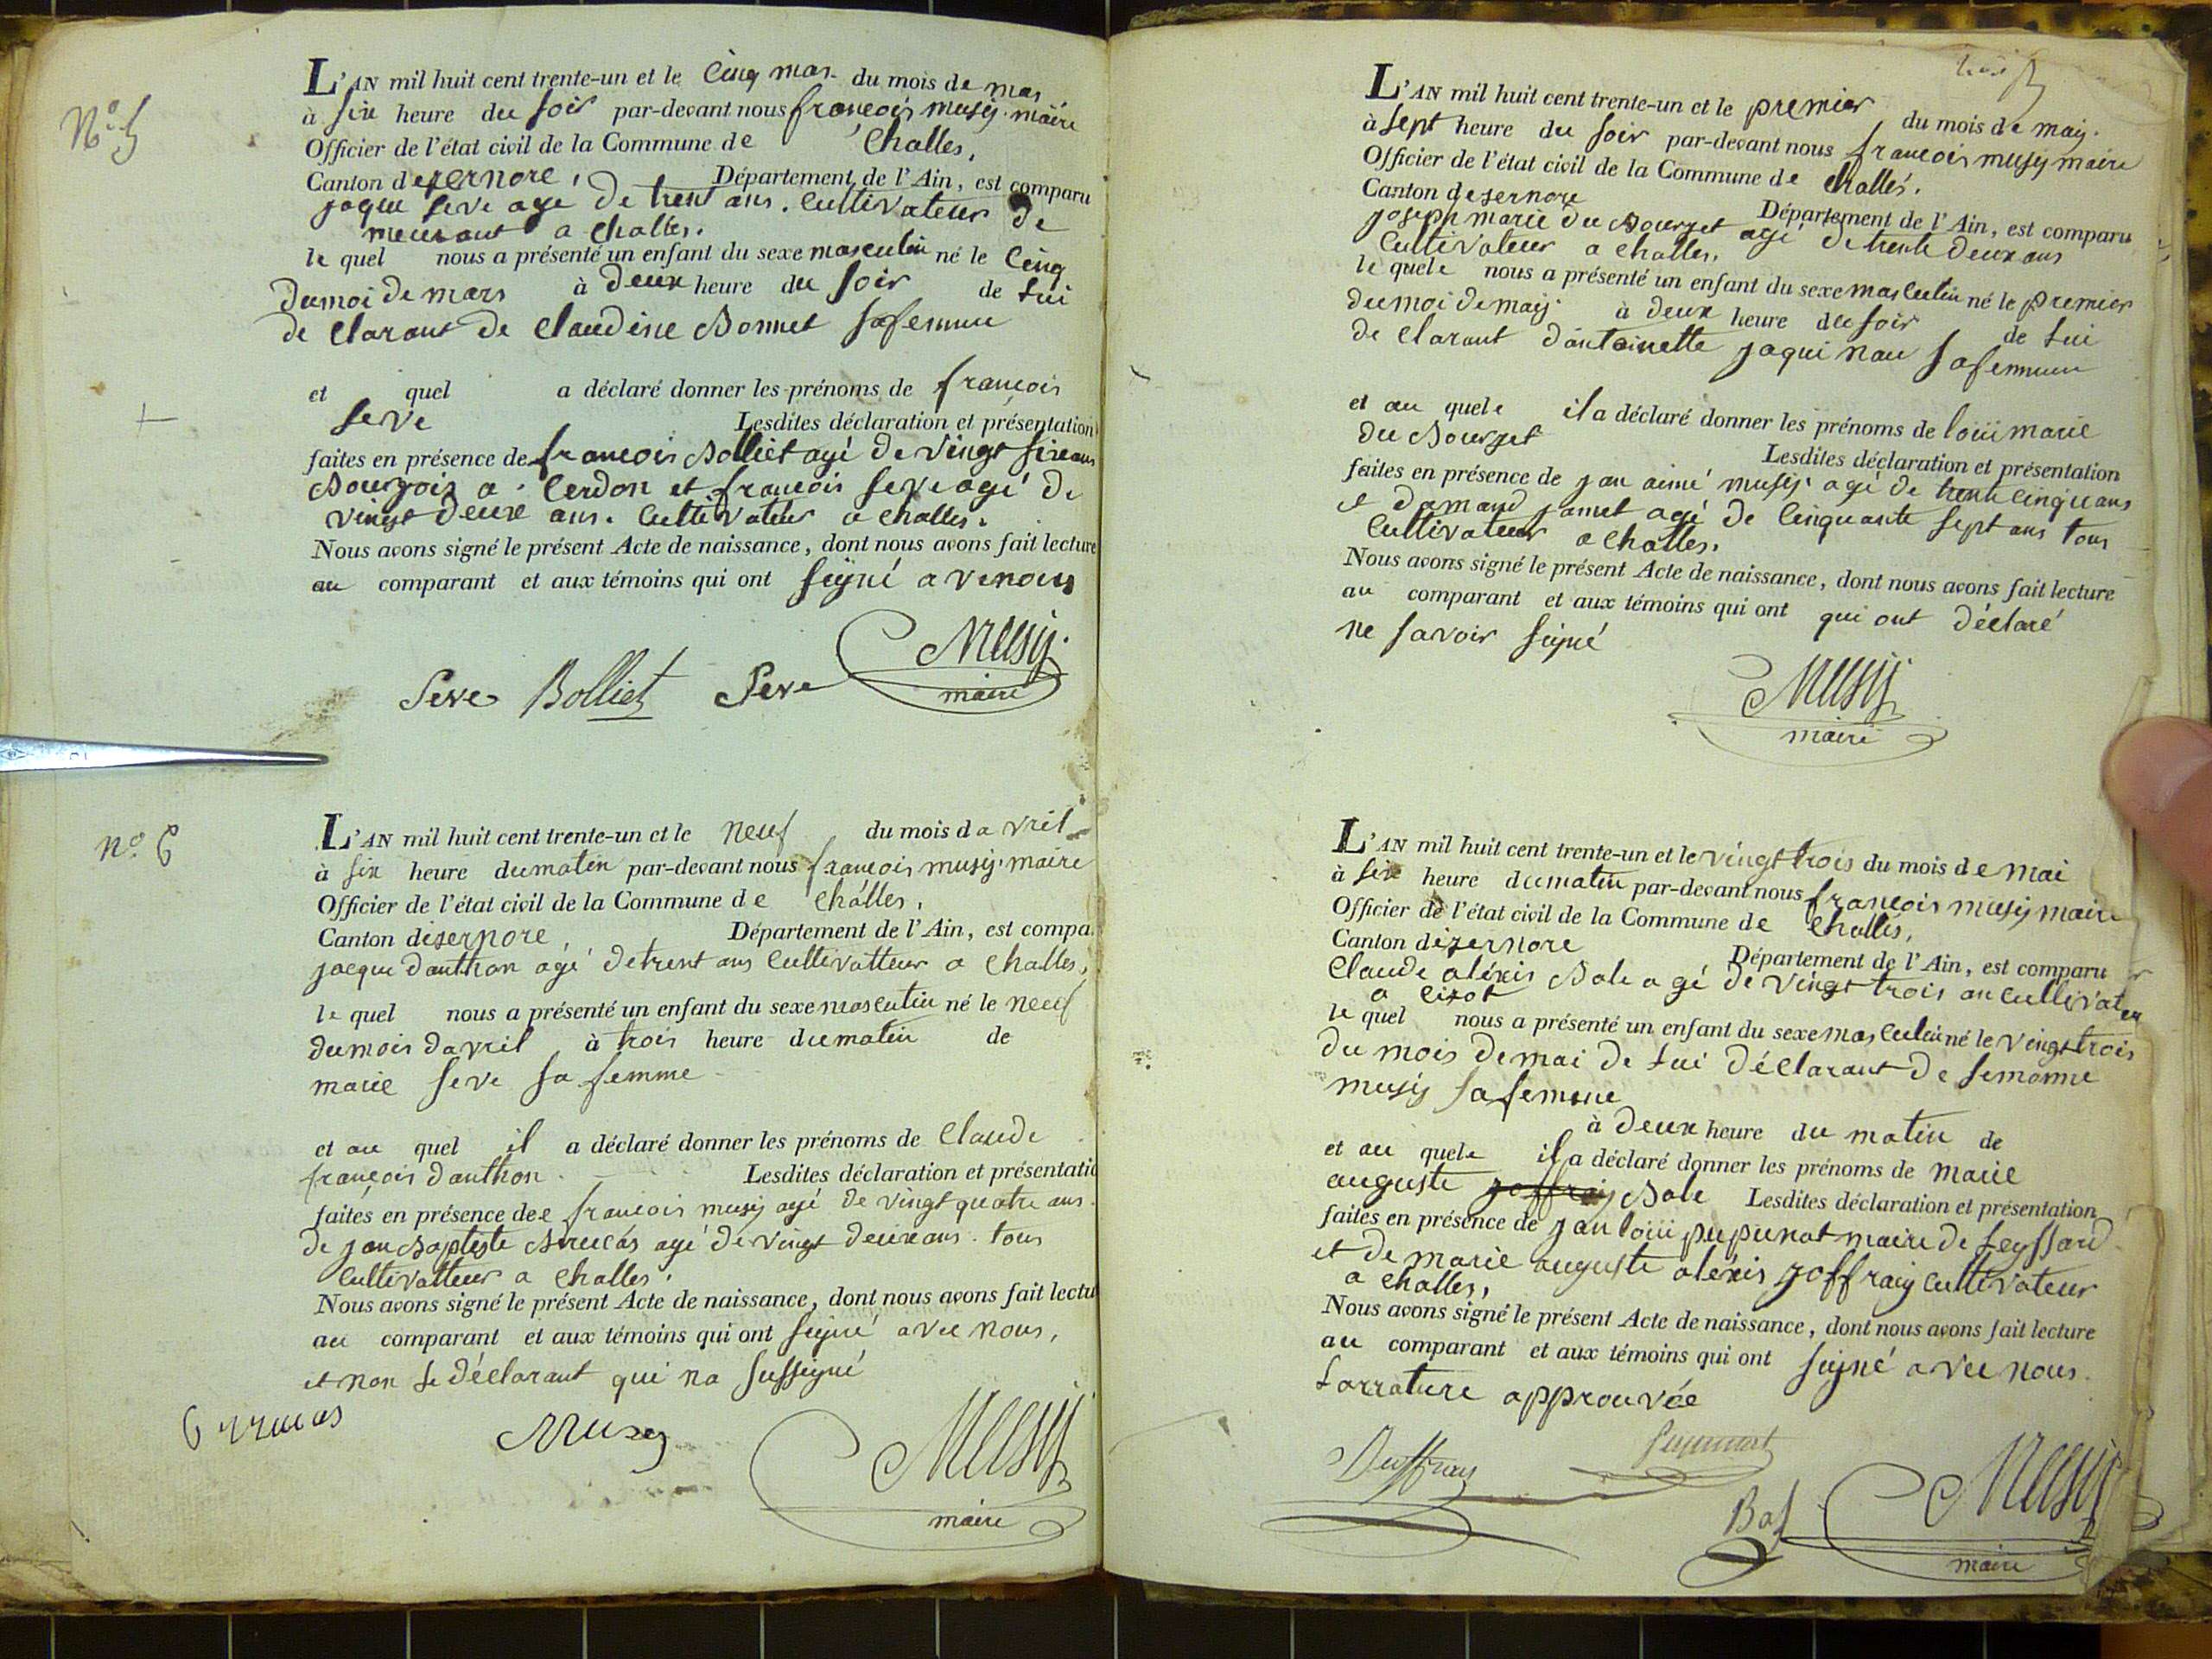 N.° 5
L'AN mil huit cent trente-un et le Cinq mar. du mois de mar
à six heure du soir par-devant nous françois musy. maire
Officier de l'état civil de la Commune de Challes,
Canton dezernore, Département de l'Ain, est comparu
jaque seve age de trent ans. Cultivateur de
meurant a challes.
le quel nous a présenté un enfant du sexe masculin né le Cinq
dumoi de mars à deux heure du soir de lui
de clarant de claudine Bonnet sa femme
et quel a déclaré donner les prénoms de françois
seve Lesdites déclaration et présentation
faites en présence de françois Bolliet agé de vingt six ans
Bourgois a Cerdon et françois seve agé de
vingt deux ans. Cultivateur a challes.
Nous avons signé le présent Acte de naissance, dont nous avons fait lecture
au comparant et aux témoins qui ont signé a ve nous
Seve Bolliet Seve Musy
maire
n.° 6
L'AN mil huit cent trente-un et le neuf du mois d avril
à six heure du matin par-devant nous françois musy. maire
Officier de l'état civil de la Commune de Challes,
Canton dizernore, Département de l'Ain, est compa
jacque danthon agé de trent ans Cultivatteur a Challes,
le quel nous a présenté un enfant du sexe masculin né le neuf
dumois davril à trois heure du matin de
marie seve sa femme
et au quel il a déclaré donner les prénoms de Claude
françois danthon. Lesdites déclaration et présentatio
faites en présence dee françois musy agé de vingt quatre ans.
de jan Baptiste Brucas agé de vingt deux ans. tous
Cultivatteur a Challes.
Nous avons signé le présent Acte de naissance, dont nous avons fait lectu
au comparant et aux témoins qui ont signé avec nous,
et non le déclarant qui na sussigné
Brucas Musy Musy
maire
trois
L'AN mil huit cent trente-un et le premier du mois de maij.
à sept heure du soir par-devant nous françois musy maire
Officier de l'état civil de la Commune de Challes.
Canton dezernore Département de l'Ain, est comparu
joseph marie du Bourget agé de trente deux ans
Cultivateur a challes.
le quele nous a présenté un enfant du sexe masculin né le premier
dumoi de maij à deux heure du soir de lui
de clarant dantoinette jaqui nau sa femme
et au quele il a déclaré donner les prénoms de louii marie
du Bourget Lesdites déclaration et présentation
faites en présence de jan aimé musy agé de trente cinq ans
et damand jamet agé de Cinquante sept ans tous
Cultivateur a challes.
Nous avons signé le présent Acte de naissance, dont nous avons fait lecture
au comparant et aux témoins qui ont qui ont déclaré
ne savoir signé
Musy
maire
L'AN mil huit cent trente-un et le vingt trois du mois de mai
à six heure du matin par-devant nous françois musy maire
Officier de l'état civil de la Commune de Challes,
Canton dizernore Département de l'Ain, est comparu
Claude aléxis Bole agé de vingt trois an cultivateu
a Cizot
le quel nous a présenté un enfant du sexe masculin né le vingt trois
du mois de mai de lui déclarant de semonne
musy sa femme
à deux heure du matin de
et au quele il a déclaré donner les prénoms de marie
auguste joffray Bole Lesdites déclaration et présentation
faites en présence de jan louii pupunat maire de leyssard
et de marie auguste aléxis joffray cultivateur
a challes,
Nous avons signé le présent Acte de naissance, dont nous avons fait lecture
au comparant et aux témoins qui ont signé avec nous.
larrature approuvée
Musy
maire